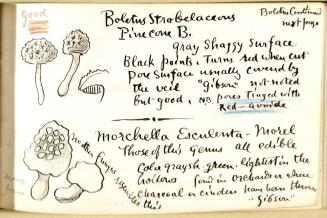 good
Boletus Strobelaceous
Boletus Continued
next page
Pinecone B.
Gray Shaggy Surface
Black points, Turns red when cut
Pore Surface usually covered by
the veil "Gibson" not noted
but good, NB pores Tinged with
Red - avoide
Morchella Esculenta - Morel
Those of this Genus all edible
Color graysh-green, lightest in the
found in orchards or where
charcoal or cinders have been thrown
"Gibson"
no other Fungus resembles this